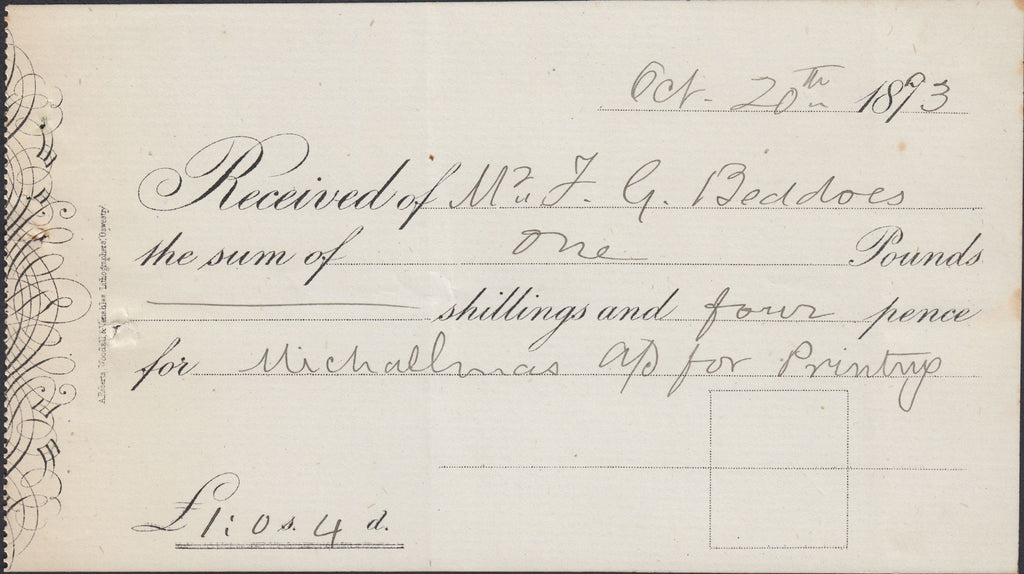 Oct. 20th 1893
Received of Mr. F. G. Beddoes
the sum of One Pounds
shillings and four pence
for Michallmas a/c for Printing
£1: 0 s. 4 d.
Woodall & Venables Lithographers Oswestry